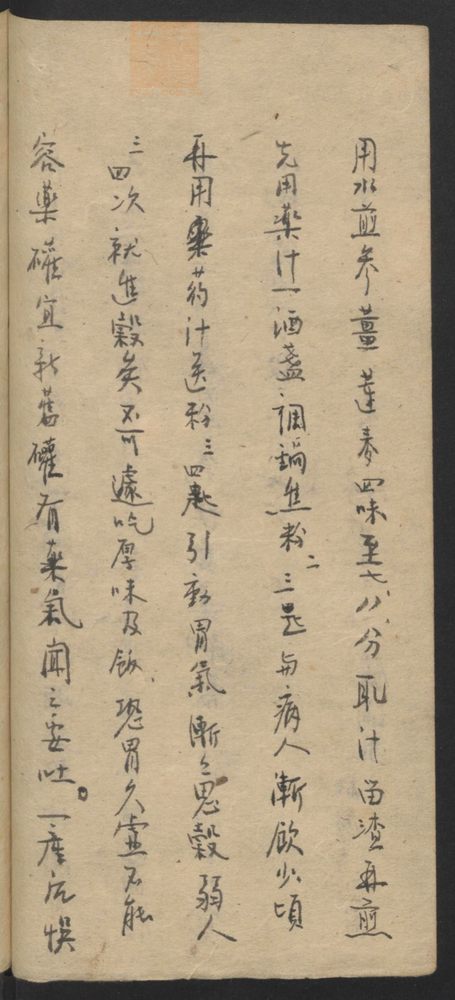 用水煎参薑蓮麥四味至七八分取汁留渣再煎
先用藥汁一酒盞調鍋焦粉二三匙与病人漸飲少頃
再用藥葯汁送粉三四匙引動胃氣漸〻思穀弱人
三四次就進穀矣不可遽吃厚味及飯恐胃久虛不能
容藥礶宜新舊礶有藥氣聞之要吐一產后悞